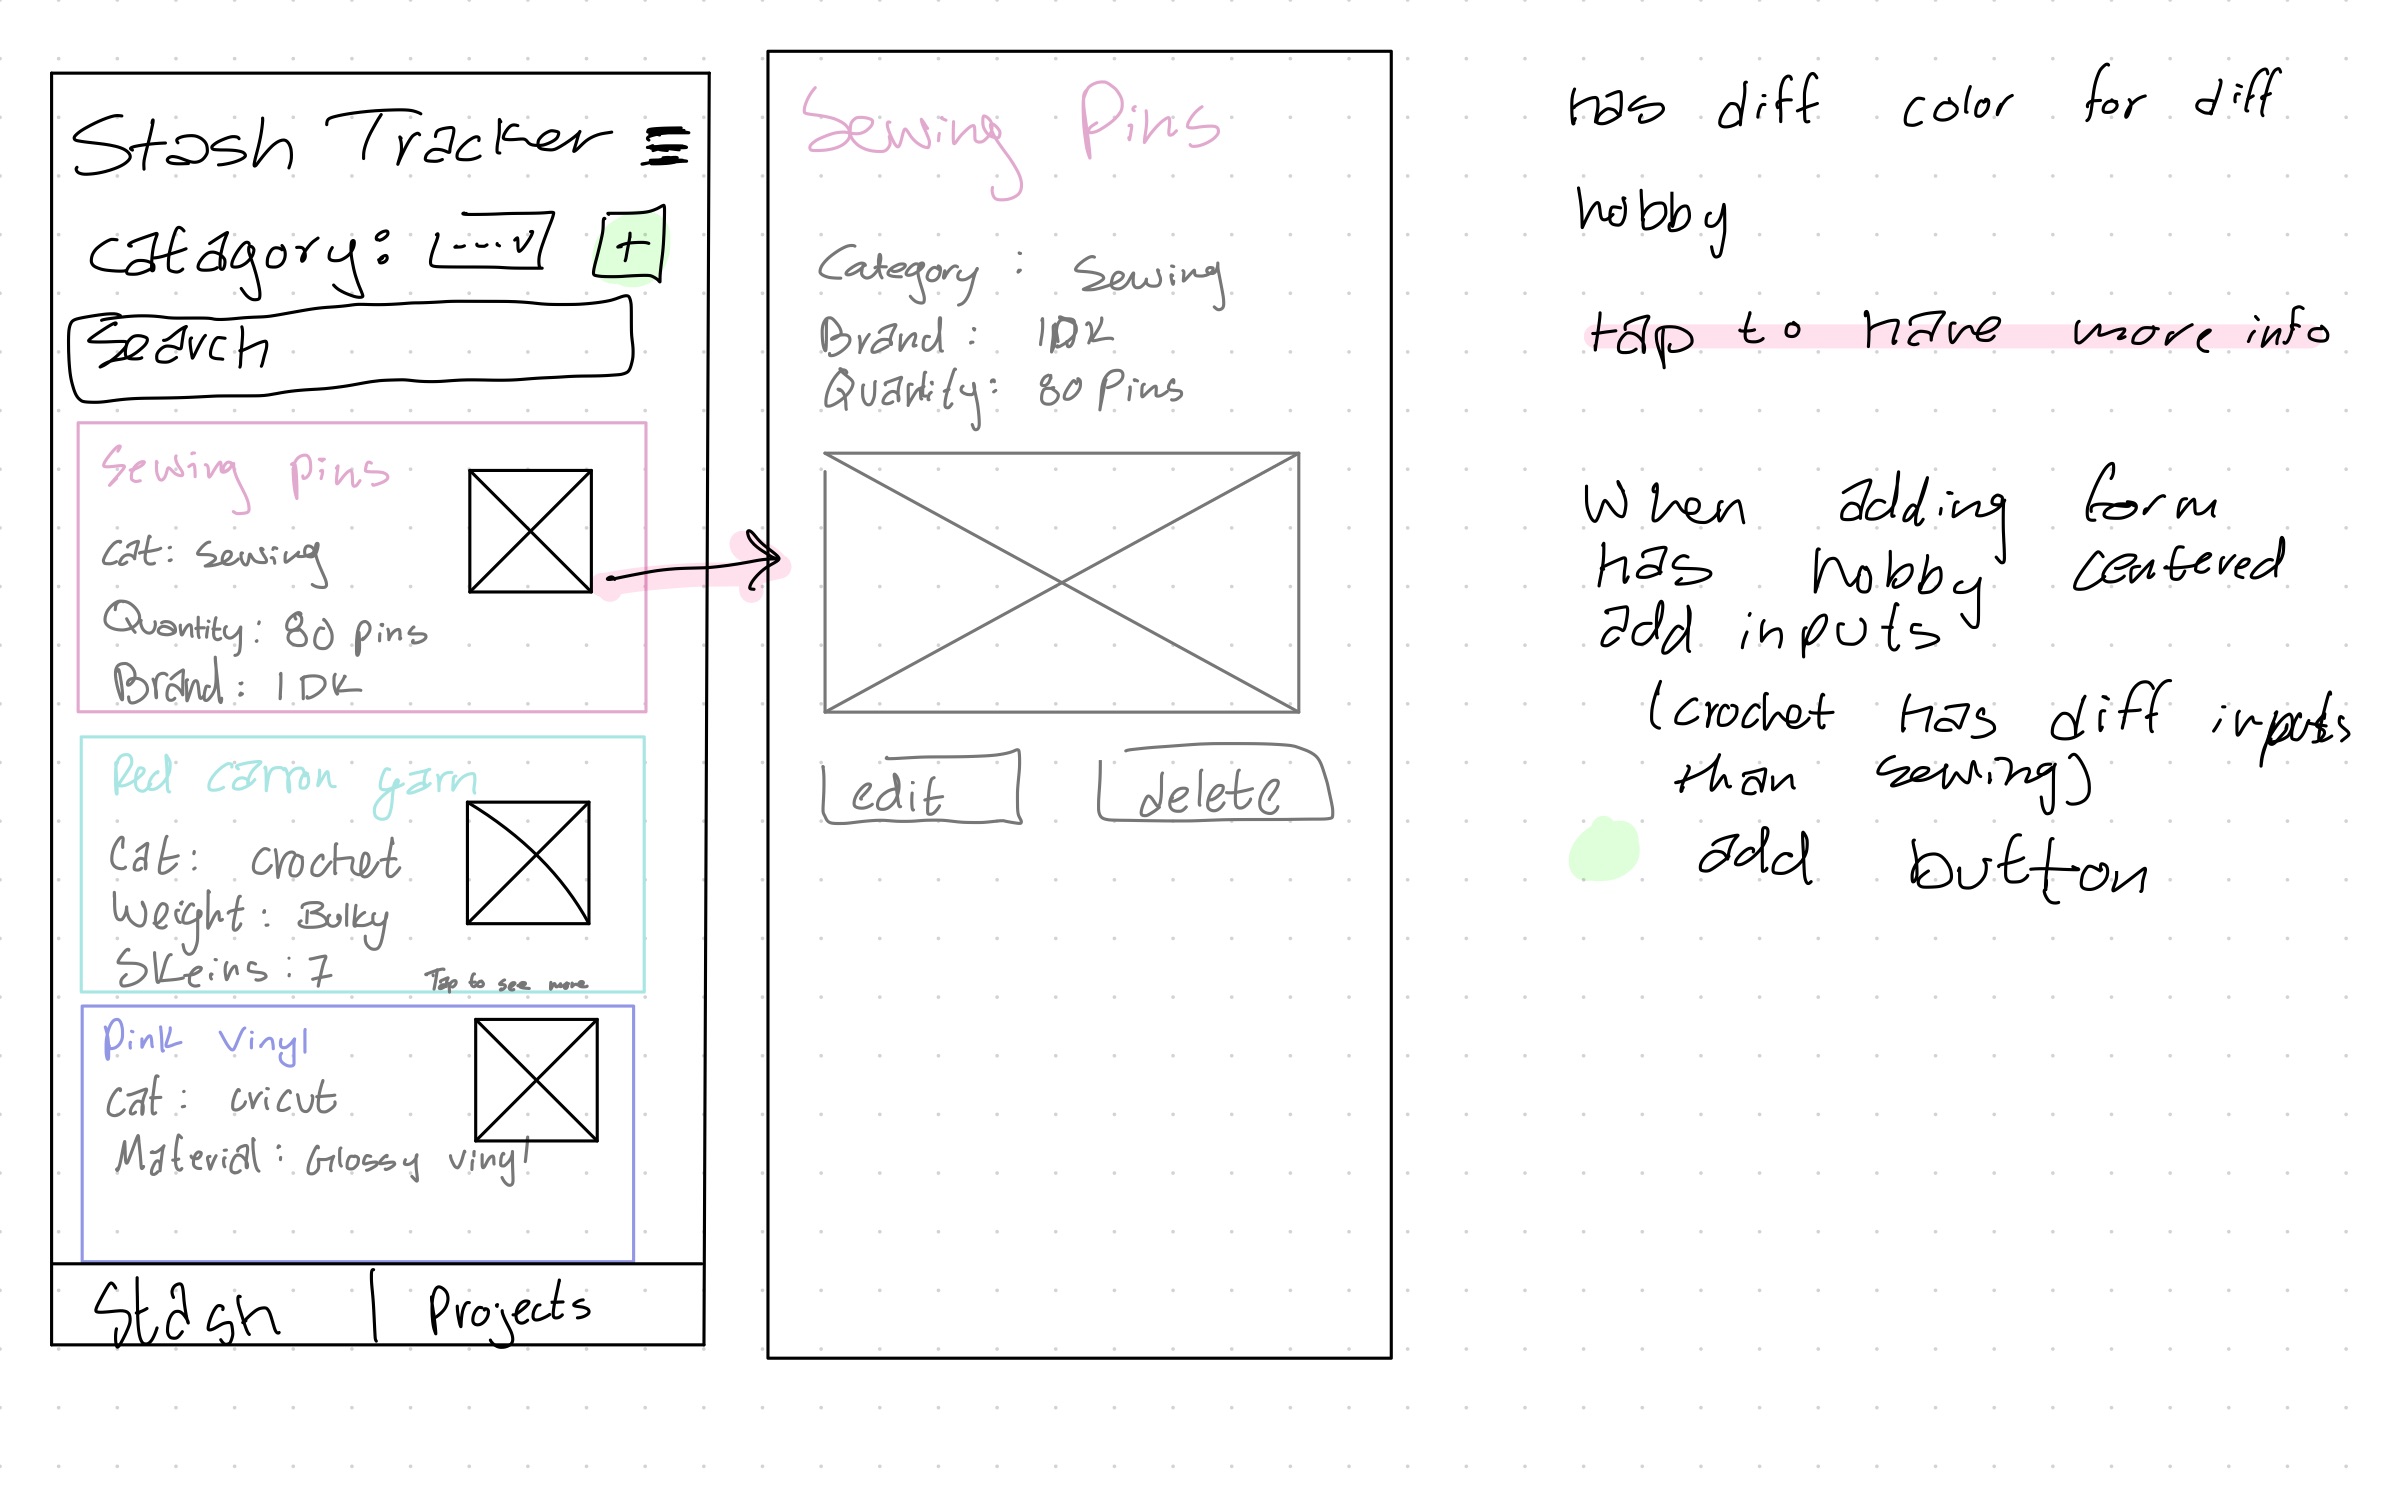 Stash Tracker
catagory: ....v +
Search
Sewing pins
cat: sewing
Quantity: 80 pins
Brand: IDK
Red caron yarn
Cat: crochet
Weight: Bulky
Skeins: 7
Tap to see more
Pink vinyl
cat: cricut
Material: Glossy vinyl
Stash | Projects
Sewing Pins
Category: Sewing
Brand: IDK
Quantity: 80 Pins
edit delete
has diff color for diff
hobby
tap to have more info
When adding form
has hobby centered
add inputs
(crochet has diff inputs
than sewing)
add button